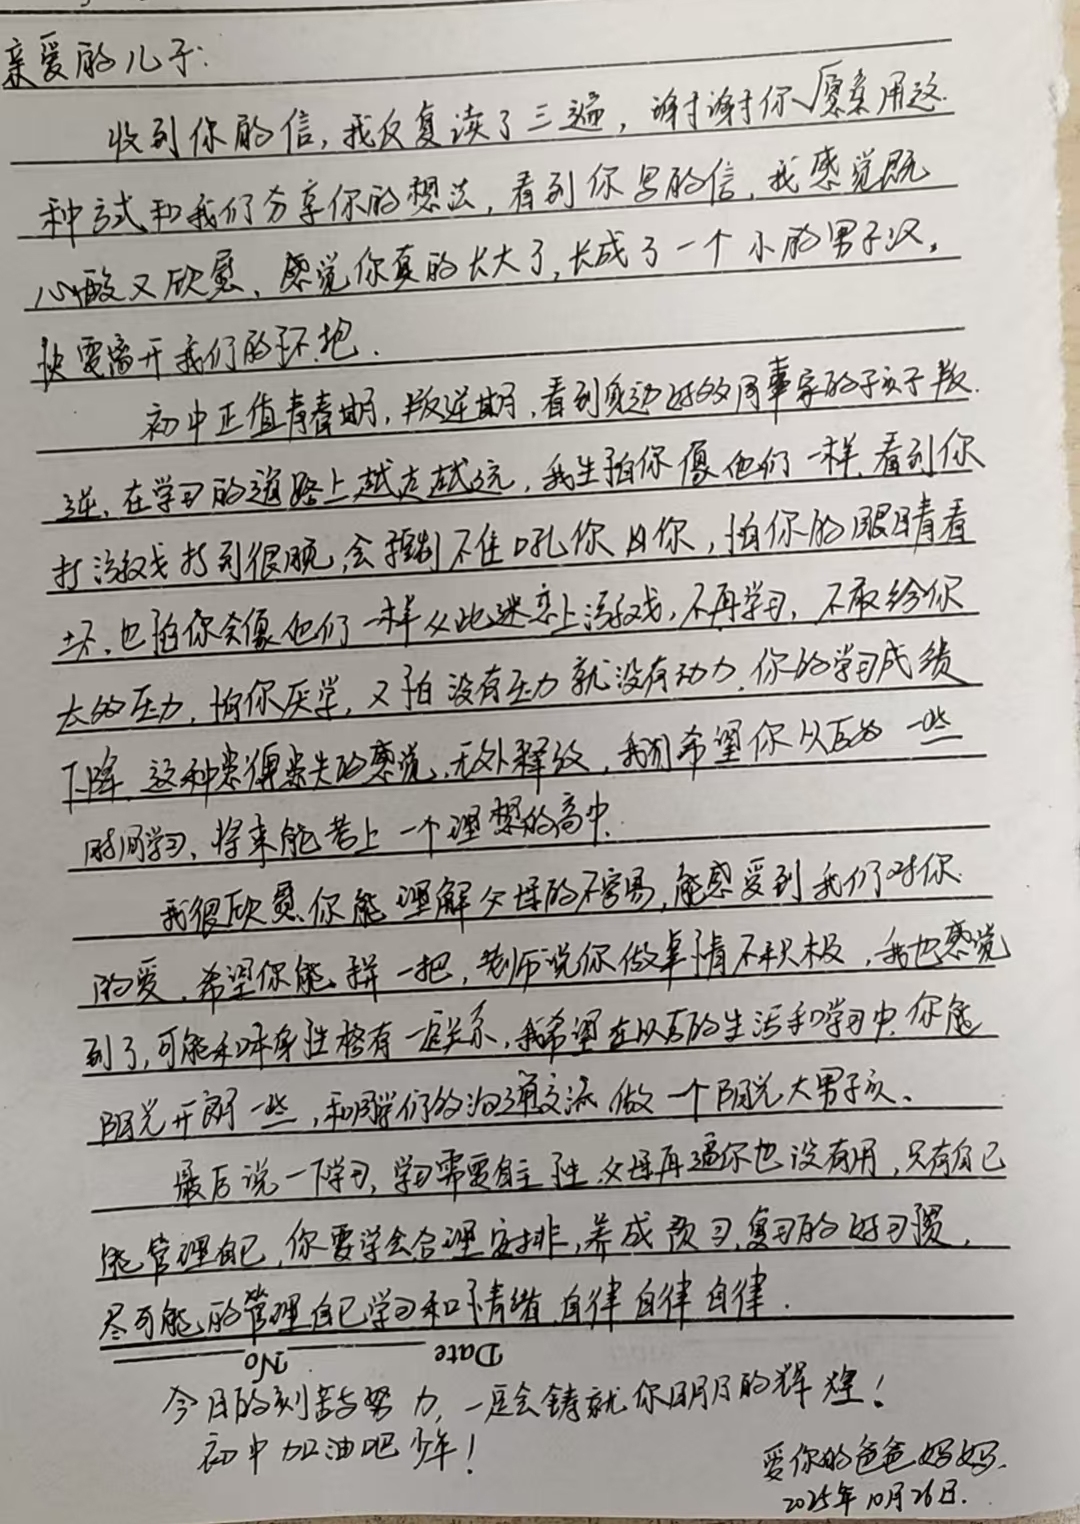 亲爱的儿子:
收到你的信,我反复读了三遍,谢谢你愿意用这
种方式和我们分享你的想法,看到你写的信,我感觉既
心酸又欣慰、感觉你真的长大了,长成了一个小的男子汉,
快要离开我们的怀抱.
初中正值青春期,叛逆期,看到身边好的同事家的孩子叛
逆、在学习的道路上越走越远,我生怕你像他们一样.看到你
打游戏打到很晚,会控制不住吼你凶你,怕你的眼睛看
坏、也怕你会像他们一样从此迷恋上游戏,不再学习,不敢给你
太多压力,怕你厌学,又怕没有压力就没有动力.你的学习成绩
下降.这种患得患失的感觉,无处释放,我们希望你以后多一些
时间学习、将来能考上一个理想的高中.
我很欣慰你能理解父母的不容易,能感受到我们对你
的爱.希望你能拼一把,老师说你做事情不积极,我也感觉
到了,可能和本身性格有一定关系,我希望在以后的生活和学习中.你能
阳光开朗一些,和同学们多沟通交流 做一个阳光大男孩、
最后说一下学习,学习需要自主性,父母再逼你也没有用,只有自己
能管理自己,你要学会合理安排,养成预习,复习的好习惯,
尽可能的管理自己学习和情绪 自律 自律 自律.
Date
No
今日的刻苦与努力,一定会铸就你明日的辉煌!
初中加油吧少年!
爱你的爸爸妈妈.
2025年10月26日.